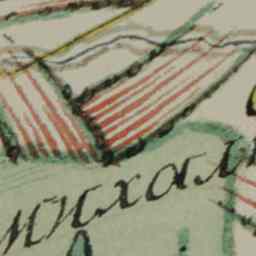 михал